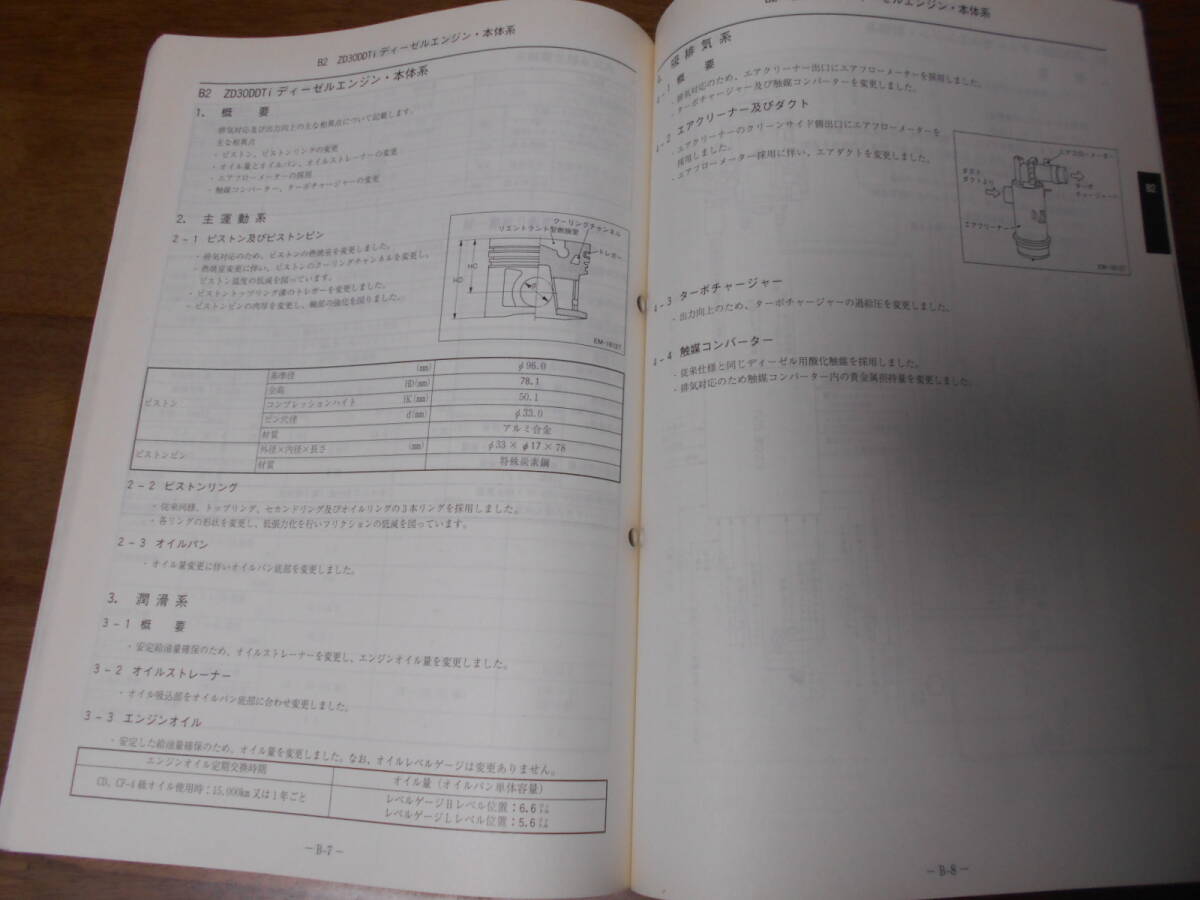 B2 ZD30DDTi ディーゼルエンジン・本体系
B2 ZD30DDTi ディーゼルエンジン・本体系
1. 概 要
排気対応及び出力向上の主な相異点について記載します。
主な相異点
・ピストン、ピストンリングの変更
・オイル量とオイルパン、オイルストレーナーの変更
・エアフローメーターの採用
・触媒コンバーター、ターボチャージャーの変更
2. 主運動系
2-1 ピストン及びピストンピン
・排気対応のため、ピストンの燃焼室を変更しました。
・燃焼室変更に伴い、ピストンのクーリングチャンネルを変更し、
ピストン温度の低減を図っています。
・ピストントップリング溝のトレガーを変更しました。
・ピストンピンの肉厚を変更し、軸部の強化を図りました。
クーリングチャンネル
リエントラント型燃焼室
トレガー
HC
HD
d
ピストン
基準径 (mm) φ96.0
全高 HD(mm) 78.1
コンプレッションハイト HC(mm) 50.1
ピン穴径 d(mm) φ33.0
材質 アルミ合金
ピストンピン
外径×内径×長さ (mm) φ33 × φ17 × 78
材質 特殊炭素鋼
2-2 ピストンリング
・従来同様、トップリング、セカンドリング及びオイルリングの3本リングを採用しました。
・各リングの形状を変更し、低張力化を行いフリクションの低減を図っています。
2-3 オイルパン
・オイル量変更に伴いオイルパン底部を変更しました。
3. 潤滑系
3-1 概 要
・安定給油量確保のため、オイルストレーナーを変更し、エンジンオイル量を変更しました。
3-2 オイルストレーナー
・オイル吸込部をオイルパン底部に合わせ変更しました。
3-3 エンジンオイル
・安定した給油量確保のため、オイル量を変更しました。なお、オイルレベルゲージは変更ありません。
エンジンオイル定期交換時期 オイル量(オイルパン単体容量)
CD、CF-4級オイル使用時:15,000km又は1年ごと
レベルゲージHレベル位置:6.6リットル
レベルゲージLレベル位置:5.6リットル
-B-7-
ディーゼルエンジン・本体系
4. 吸排気系
4-1 概 要
・排気対応のため、エアクリーナー出口にエアフローメーターを採用しました。
・ターボチャージャー及び触媒コンバーターを変更しました。
4-2 エアクリーナー及びダクト
・エアクリーナーのクリーンサイド側出口にエアフローメーターを
採用しました。
・エアフローメーター採用に伴い、エアダクトを変更しました。
エアフローメーター
ダクトより
ターボ
チャージャーへ
エアクリーナー
B2
4-3 ターボチャージャー
・出力向上のため、ターボチャージャーの過給圧を変更しました。
4-4 触媒コンバーター
・従来仕様と同じディーゼル用酸化触媒を採用しました。
・排気対応のため触媒コンバーター内の貴金属担持量を変更しました。
-B-8-